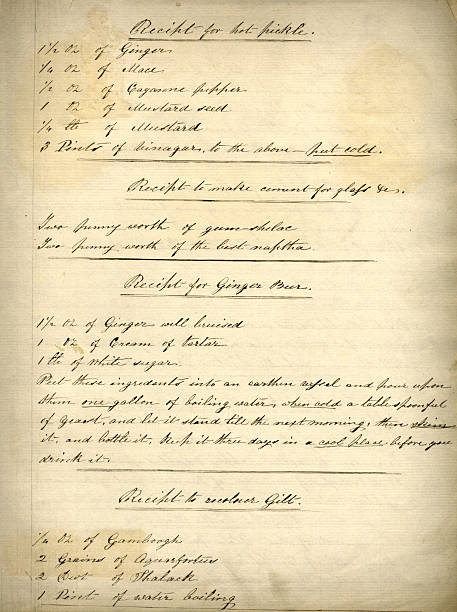 Recipt for hot pickle.
1 1/2 oz of Ginger
1/4 oz of Mace
1/2 oz of Cayanne pepper
1 oz of Mustard seed
1/4 lb of Mustard
3 Pints of Vinagar, to the above - put cold.
Recipt to make cement for glass &c.
Two penny worth of gum-shelac
Two penny worth of the best naptha
Recipt for Ginger Beer.
1 1/2 oz of Ginger well bruised
1 oz of Cream of tartar
1 lb of White sugar
Put these ingredients into an earthen vessel and pour upon
them one gallon of boiling water, when cold a table spoonful
of yeast, and let it stand till the next morning, then
it, and bottle it, keep it three days in a cool place before you
drink it.
Recipt to recolour Gilt.
1/4 oz of Gamboogh
2 Grains of Aquafortus
2 of Shalack
1 Pint of water boiling